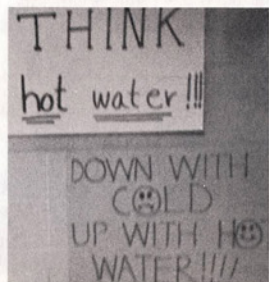 THINK
hot water!!!
DOWN WITH
C☹LD
UP WITH H☺
WATER!!!!